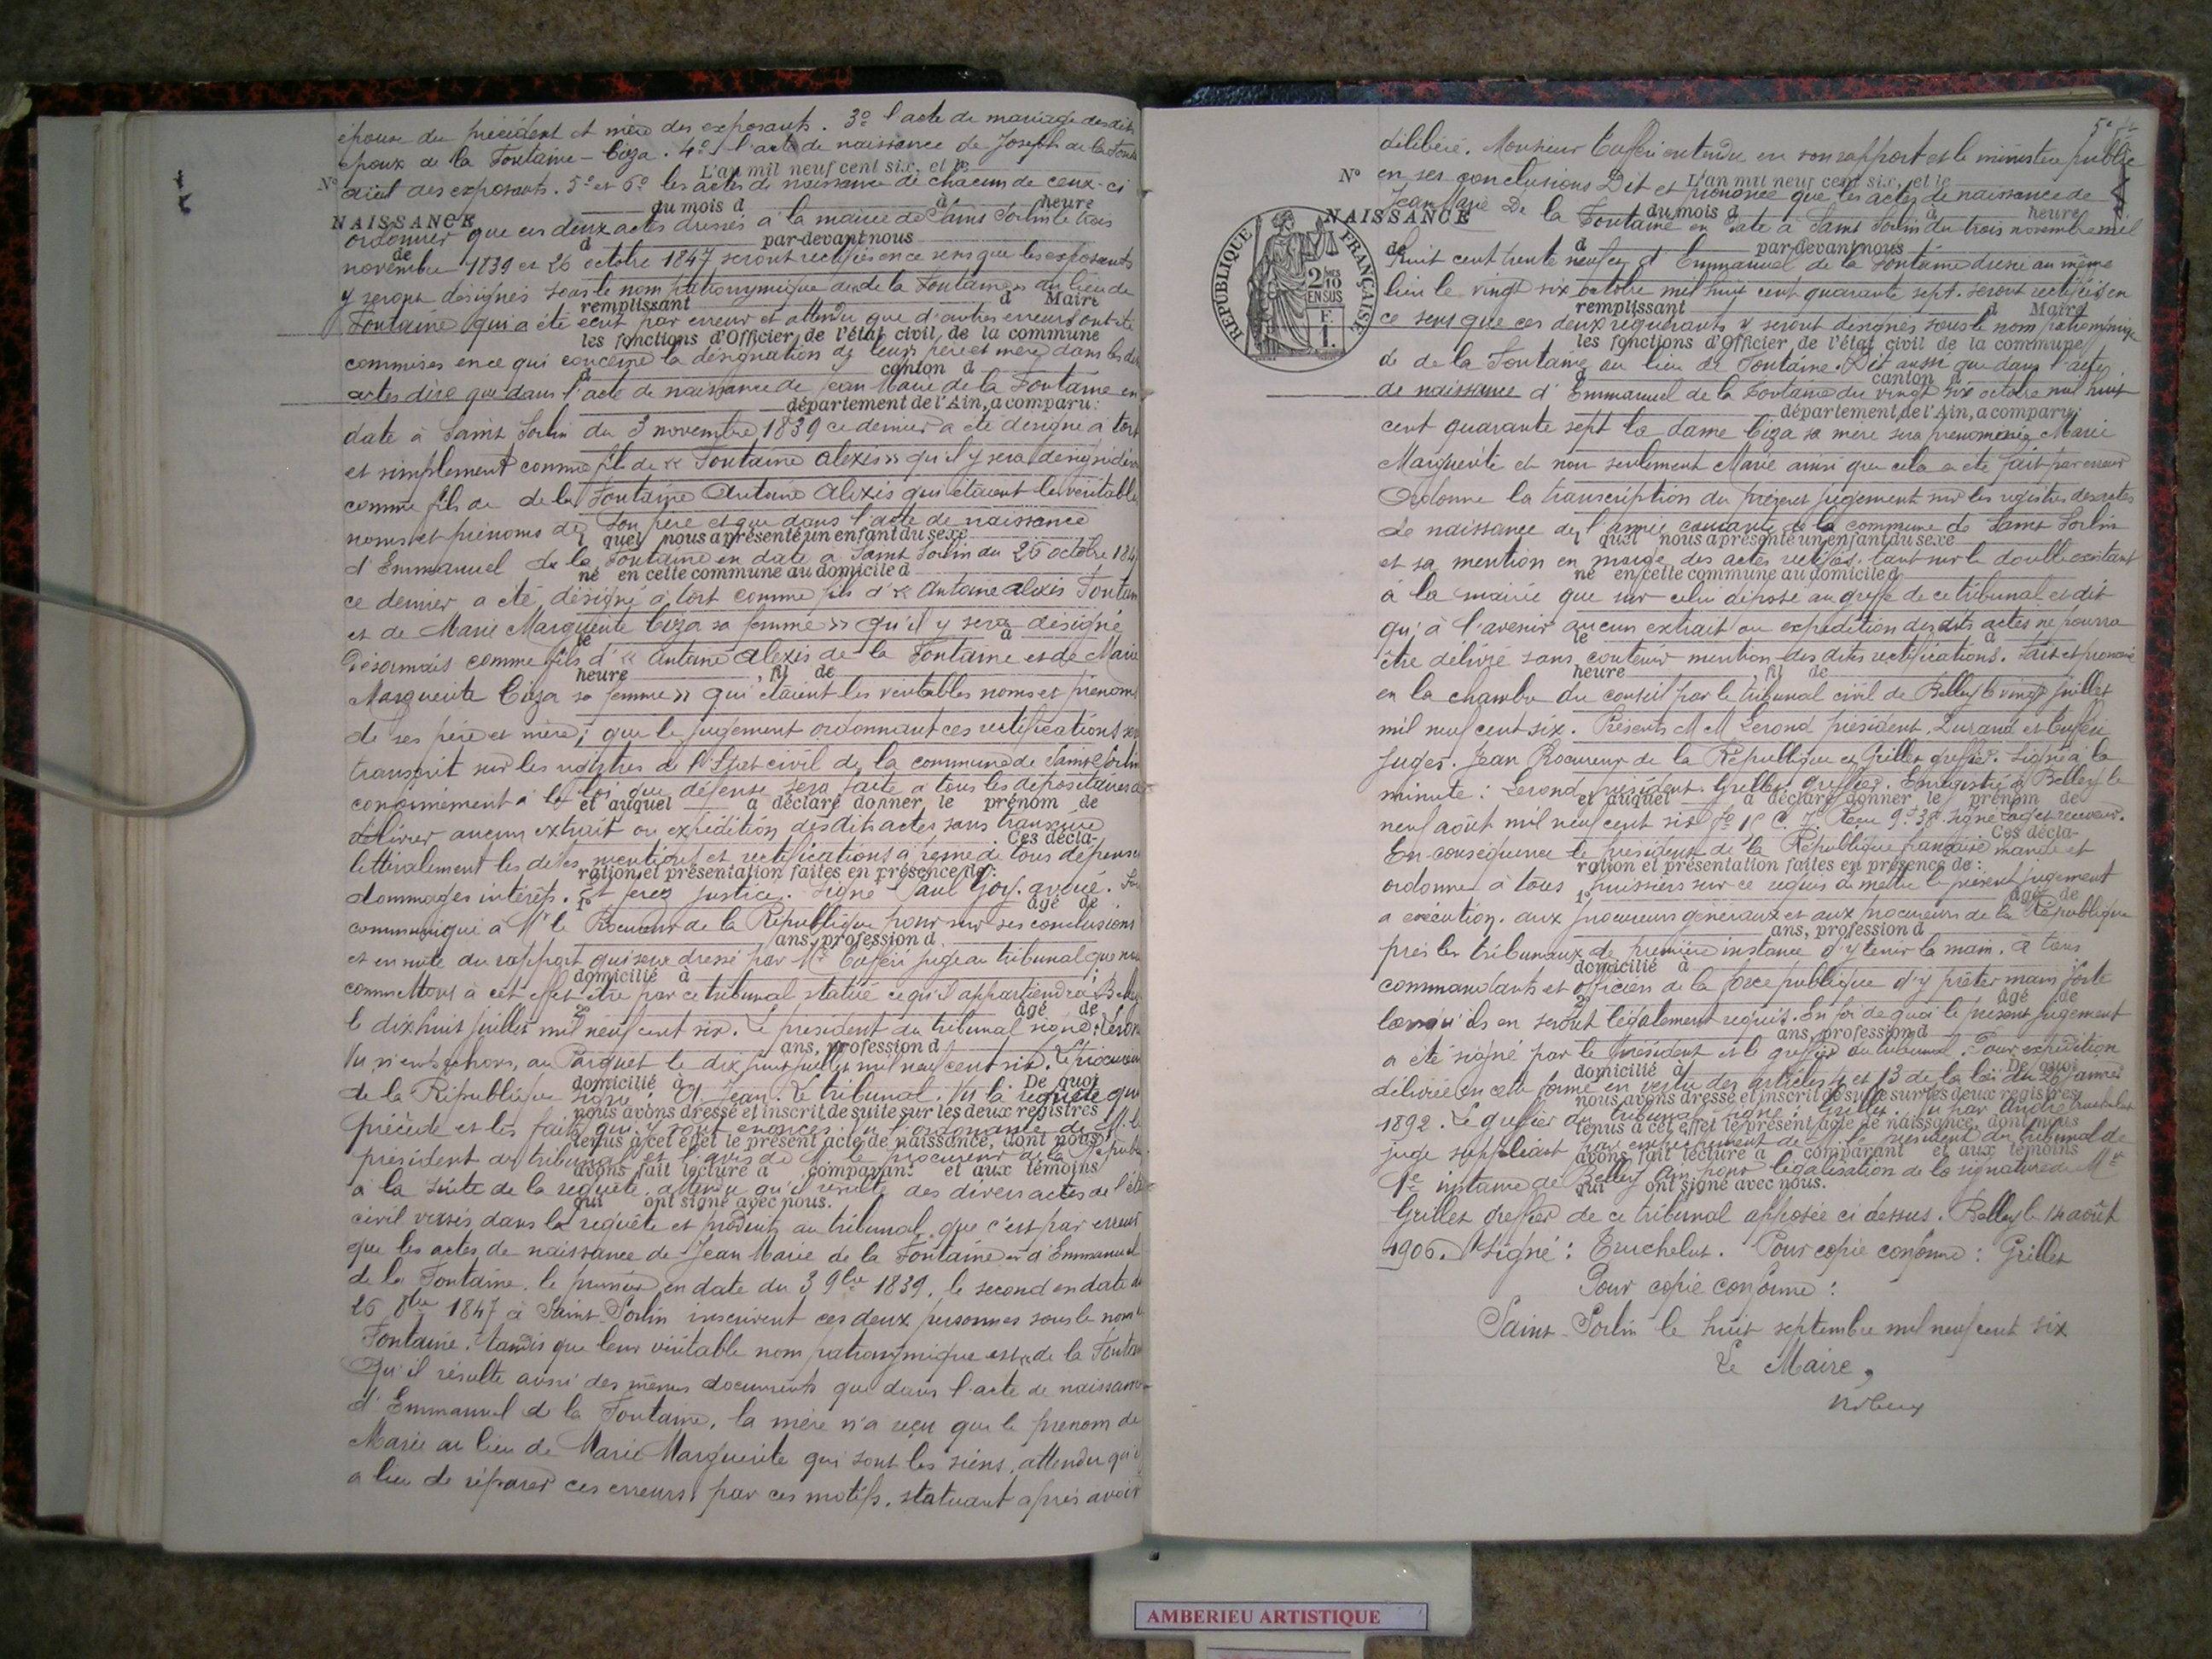 épouse du précédent et mère des exposants. 3º l'acte de mariage desdits
époux de la Fontaine - Ciza. 4º l'acte de naissance de Joseph de la
L'an mil neuf cent six, et le
Nº
aïeul des exposants. 5º et 6º les actes de naissance de chacun de ceux-ci
du mois d à heure
NAISSANCE
ordonner que ces deux actes dressés à la mairie de Saint Sorlin le trois
d par-devant nous
de
novembre 1839 et 26 octobre 1847 seront rectifiés en ce sens que les exposants
y seront désignés sous le nom patronymique de de la Fontaine au lieu de
remplissant d Maire
Fontaine qui a été écrit par erreur et attendu que d'autres erreurs ont été
les fonctions d'Officier de l'état civil de la commune
commises en ce qui concerne la désignation de leurs père et mère dans les
d canton d
actes dire que dans l'acte de naissance de Jean Marie de la Fontaine en
département de l'Ain, a comparu:
date à Saint Sorlin du 3 novembre 1839 ce dernier a été désigné à tort
et simplement comme fils de « Fontaine Alexis » qu'il y sera désigné
comme fils de de la Fontaine Antoine Alexis qui étaient les véritables
noms et prénoms de son père et que dans l'acte de naissance
quel nous a présenté un enfant du sexe
d'Emmanuel de la Fontaine en date à Saint Sorlin du 26 octobre 1847
né en cette commune au domicile d
ce dernier a été désigné à tort comme fils d'« Antoine Alexis
et de Marie Marguerite Ciza sa femme » qu'il y sera désigné
le à
désormais comme fils d'« Antoine Alexis de la Fontaine et de Marie
heure , fil de
Marguerite Ciza sa femme » qui étaient les véritables noms et prénoms
de ses père et mère; que le jugement ordonnant ces rectifications
transcrit sur les registres de l'Etat civil de la commune de Saint Sorlin
conformément à la loi que défense sera faite à tous les dépositaires
et auquel a déclaré donner le prénom de
délivrer aucun extrait ou expédition desdits actes sans transcrire
Ces décla-
littéralement les dites mentions et rectifications à peine de tous dépens
ration et présentation faites en présence de:
dommages intérêts. Et ferez justice. Signé Paul Goy. avoué.
1º âgé de
communiqué à Mr le Procureur de la République pour sur ses conclusions
ans, profession d
et en suite du rapport qui sera dressé par Mr juge au tribunal que nous
domicilié à
commettons à cet effet être par ce tribunal statué ce qu'il appartiendra
âgé de
le dix huit juillet mil neuf cent six. Le président du tribunal signé:
ans, profession d
Vu n'empêchons, au Parquet le dix huit juillet mil neuf cent six. Le procureur
domicilié à De quoi
de la République signé: Jean. Le tribunal. Vu la requête qui
nous avons dressé et inscrit de suite sur les deux registres
précède et les faits qui y sont énoncés. Vu l'ordonnance de M. le
tenus à cet effet le présent acte de naissance, dont nous
président du tribunal et l'avis de M. le procureur de la
avons fait lecture a comparant et aux témoins
à la suite de la requête, attendu qu'il résulte des divers actes de
qui ont signé avec nous.
civil versés dans la requête et produits au tribunal, que c'est par erreur
que les actes de naissance de Jean Marie de la Fontaine et d'Emmanuel
de la Fontaine, le premier en date du 3 9bre 1839, le second en date du
26 8bre 1847 à Saint-Sorlin inscrivent ces deux personnes sous le nom
Fontaine, tandis que leur véritable nom patronymique est « de la
Qu'il résulte aussi des mêmes documents que dans l'acte de naissance
d'Emmanuel de la Fontaine, la mère n'a reçu que le prénom de
Marie au lieu de Marie Marguerite qui sont les siens, attendu qu'il
a lieu de réparer ces erreurs, par ces motifs, statuant après avoir
délibéré. Monsieur entendu en son rapport et le ministère public
Nº
en ses conclusions Dit et prononce que les actes de naissance de
L'an mil neuf cent six, et le
Jean Marie De la Fontaine en date à Saint Sorlin du trois novembre mil
NAISSANCE
du mois d à heure
de
d par-devant nous
huit cent trente neuf et d'Emmanuel de la Fontaine dressé au même
RÉPUBLIQUE FRANÇAISE
2/10 EN SUS
F. 1.
lieu le vingt six octobre mil huit cent quarante sept. seront rectifiés en
remplissant d Maire
ce sens que ces deux requérants y seront désignés sous le nom patronymique
les fonctions d'Officier de l'état civil de la commune
d de de la Fontaine au lieu de Fontaine. Dit aussi que dans l'acte
canton d
de naissance d'Emmanuel de la Fontaine du vingt six octobre mil huit
département de l'Ain, a comparu:
cent quarante sept la dame Ciza sa mère sera prénommée Marie
Marguerite et non seulement Marie ainsi que cela a été fait par erreur
Ordonne la transcription du présent jugement sur les registres des actes
de naissance de l'année courante de la commune de Saint Sorlin
quel nous a présenté un enfant du sexe
et sa mention en marge des actes rectifiés, tant sur le double existant
né en cette commune au domicile d
à la mairie que sur celui déposé au greffe de ce tribunal et dit
qu'à l'avenir aucun extrait ou expédition desdits actes ne pourra
le à
être délivré sans contenir mention des dites rectifications. Fait et prononcé
heure , fil de
en la chambre du conseil par le tribunal civil de Belley le vingt juillet
mil neuf cent six. Présents M M Lerond président, Durand et
juges. Jean Procureur de la République et Grillet greffier. Signé à la
minute: Lerond, président. Grillet, greffier. Enregistré à Belley le
et auquel a déclaré donner le prénom de
neuf août mil neuf cent six
Ces décla-
En conséquence le président de la République française mande et
ration et présentation faites en présence de:
ordonne à tous huissiers sur ce requis de mettre le présent jugement
1º âgé de
à exécution. aux procureurs généraux et aux procureurs de la République
ans, profession d
près les tribunaux de première instance d'y tenir la main. à tous
domicilié à
commandants et officiers de la force publique d'y prêter main forte
2º âgé de
lorsqu'ils en seront légalement requis. En foi de quoi le présent jugement
ans, profession d
a été signé par le président et le greffier du tribunal. Pour expédition
domicilié à De quoi
délivrée en cette forme en vertu des articles 4 et 13 de la loi du 26 janvier
nous avons dressé et inscrit de suite sur les deux registres
1892. Le greffier du tribunal signé: Grillet. Vu par André
tenus à cet effet le présent acte de naissance, dont nous
juge suppléant par empêchement de M. le président du tribunal de
avons fait lecture a comparant et aux témoins
1re instance de Belley Ain pour légalisation de la signature de Mr
qui ont signé avec nous.
Grillet greffier de ce tribunal apposée ci dessus. Belley le 14 août
1906. Signé: Truchelut. Pour copie conforme: Grillet
Pour copie conforme:
Saint-Sorlin le huit septembre mil neuf cent six
Le Maire,
AMBERIEU ARTISTIQUE